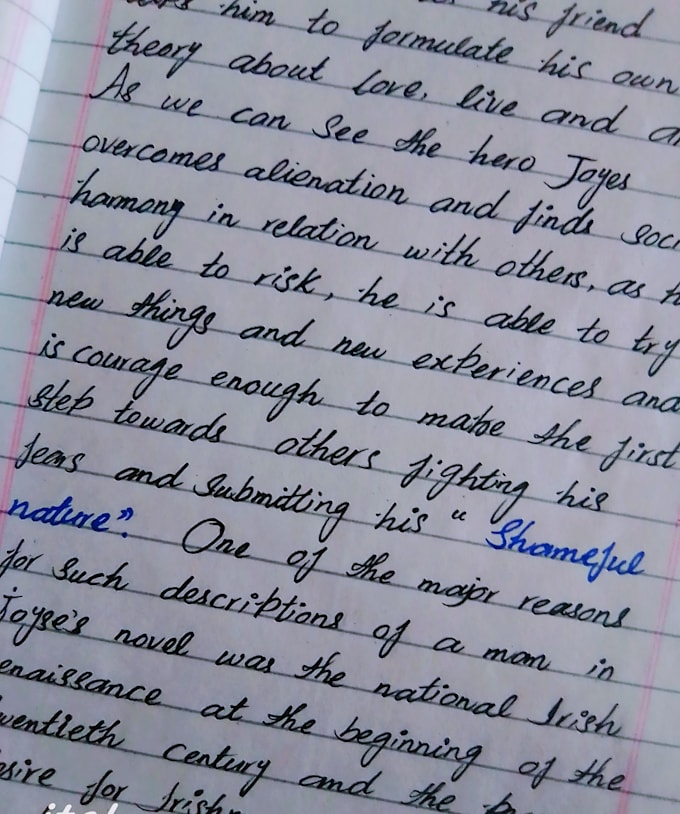 him to formulate his friend
theory about love, live and
As we can see the hero Joyes
overcomes alienation and finds
harmony in relation with others, as
is able to risk, he is able to try
new things and new experiences and
is courage enough to make the first
step towards others fighting his
fears and submitting his " Shameful
nature". One of the major reasons
for such descriptions of a man in
Joyse's novel was the national Irish
enaissance at the beginning of the
wentieth century and the
for Irish